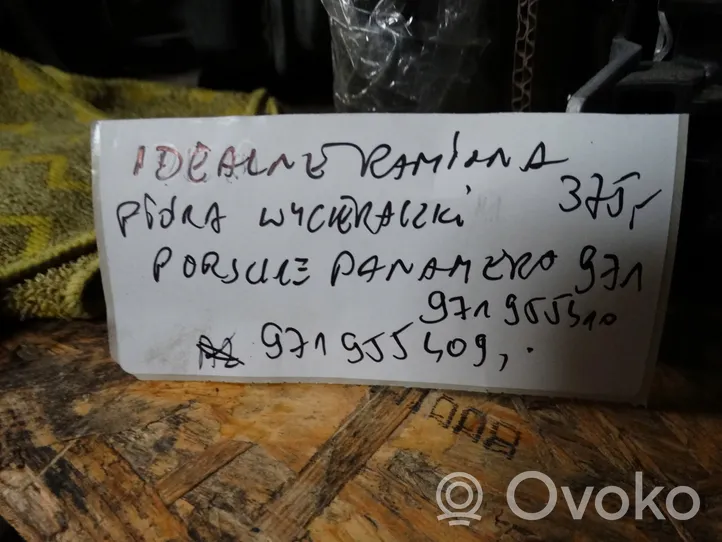 IDEALNE RAMIONA
PIÓRA WYCIERACZKI 375,-
PORSCHE PANAMERA 971
971955410
971955409,.
Ovoko